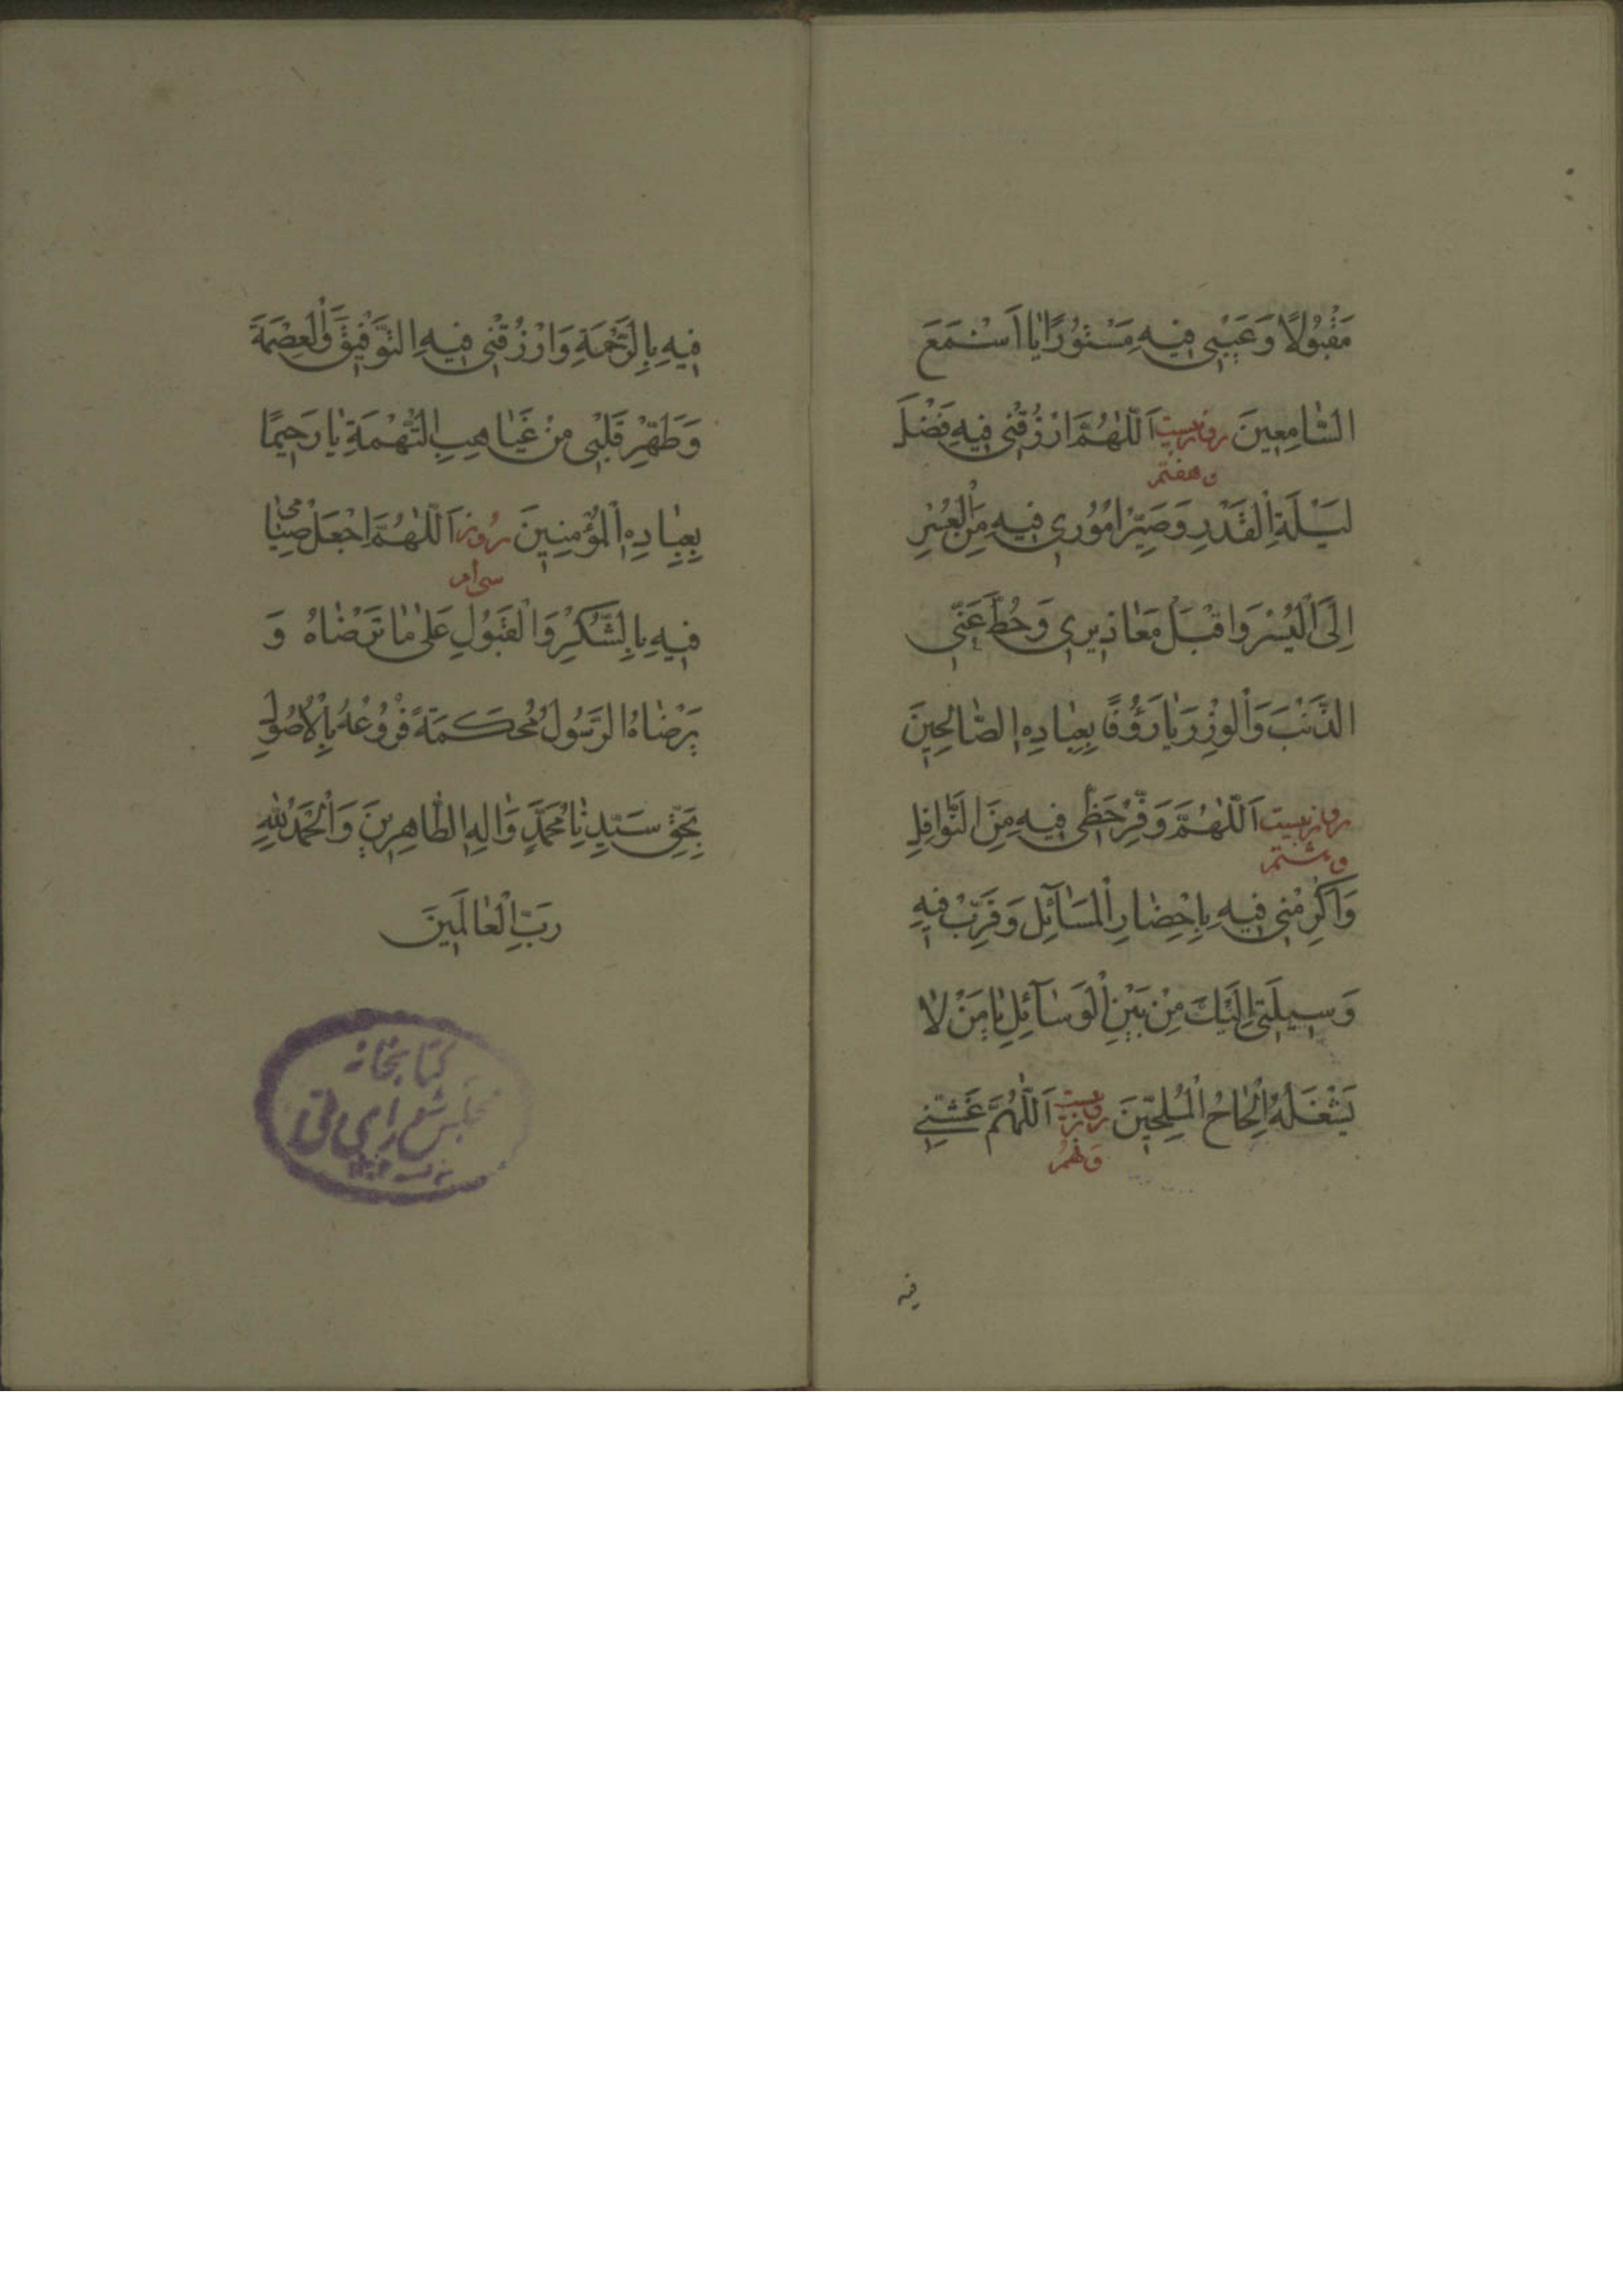 مَقْبُولًا وَعَيْبِی فِيهِ مَسْتُورًا يٰا اَسْمَعَ
السّٰامِعِينَ روز بیست اَللّٰهُمَّ ارْزُقْنِی فِيهِ فَضْلَ
و هفتم
لَيْلَةِ الْقَدْرِ وَصَيِّرْ اُمُورِی فِيهِ مِنَ الْعُسْرِ
اِلَی الْيُسْرِ وَاقْبَلْ مَعٰاذِيرِی وَحُطَّ عَنِّی
الذَّنْبَ وَالْوِزْرَ يٰا رَؤُفًا بِعِبٰادِهِ الصّٰالِحِينَ
روز بیست اَللّٰهُمَّ وَفِّرْ حَظِّی فِيهِ مِنَ النَّوٰافِلِ
و هشتم
وَاَكْرِمْنِی فِيهِ بِاِحْضٰارِ الْمَسٰآئِلِ وَقَرِّبْ فِيهِ
وَسِيلَتِی اِلَيْكَ مِنْ بَيْنِ الْوَسٰآئِلِ يٰا مَنْ لٰا
يَشْغَلُهُ اِلْحٰاحُ الْمُلِحِّينَ روز بیست اَللّٰهُمَّ غَشِّنِی
و نهم
فیه
فِيهِ بِالرَّحْمَةِ وَارْزُقْنِی فِيهِ التَّوْفِيقَ وَالْعِصْمَةَ
وَطَهِّرْ قَلْبِی مِنْ غَيٰاهِبِ التُّهْمَةِ يٰا رَحِيمًا
بِعِبٰادِهِ الْمُؤْمِنِينَ روز اَللّٰهُمَّ اجْعَلْ صِيٰامِی
سی ام
فِيهِ بِالشُّكْرِ وَالْقَبُولِ عَلٰی مٰا تَرْضٰاهُ وَ
يَرْضٰاهُ الرَّسُولُ مُحْكَمَةً فُرُوعُهُ بِالْاُصُولِ
بِحَقِّ سَيِّدِنٰا مُحَمَّدٍ وَاٰلِهِ الطّٰاهِرِينَ وَالْحَمْدُ لِلّٰهِ
رَبِّ الْعٰالَمِينَ
کتابخانه
مجلس شورای ملی